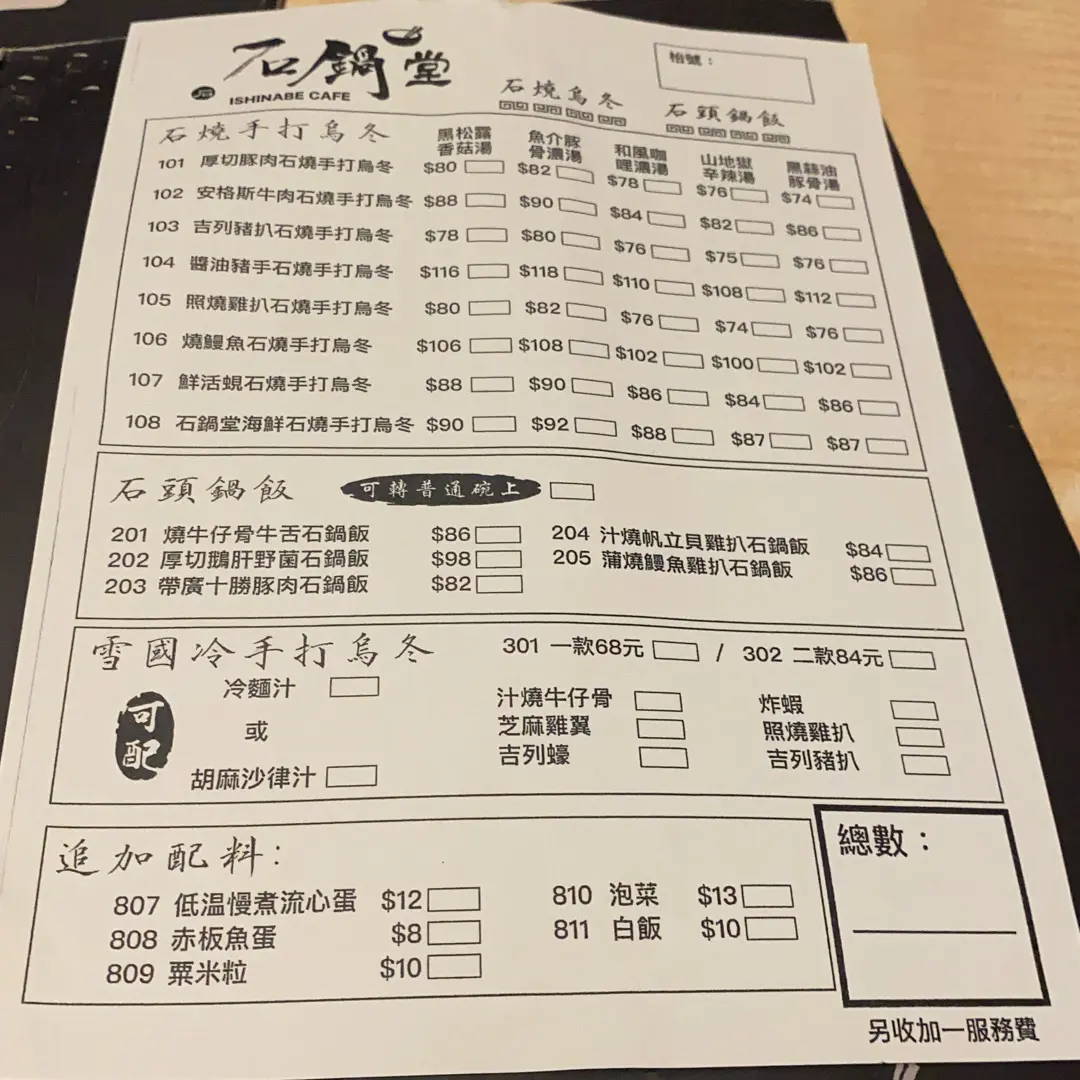 石鍋堂
ISHINABE CAFE
石燒烏冬
石頭鍋飯
枱號：
石燒手打烏冬
黑松露香菇湯 魚介豚骨濃湯 和風咖哩濃湯 山地獄辛辣湯 黑蒜油豚骨湯
101 厚切豚肉石燒手打烏冬 $80 $82 $78 $76 $74
102 安格斯牛肉石燒手打烏冬 $88 $90 $84 $82 $86
103 吉列豬扒石燒手打烏冬 $78 $80 $76 $75 $76
104 醬油豬手石燒手打烏冬 $116 $118 $110 $108 $112
105 照燒雞扒石燒手打烏冬 $80 $82 $76 $74 $76
106 燒鰻魚石燒手打烏冬 $106 $108 $102 $100 $102
107 鮮活蜆石燒手打烏冬 $88 $90 $86 $84 $86
108 石鍋堂海鮮石燒手打烏冬 $90 $92 $88 $87 $87
石頭鍋飯 可轉普通碗上
201 燒牛仔骨牛舌石鍋飯 $86
202 厚切鵝肝野菌石鍋飯 $98
203 帶廣十勝豚肉石鍋飯 $82
204 汁燒帆立貝雞扒石鍋飯 $84
205 蒲燒鰻魚雞扒石鍋飯 $86
雪國冷手打烏冬 301 一款68元 / 302 二款84元
可配
冷麵汁
或
胡麻沙律汁
汁燒牛仔骨
芝麻雞翼
吉列蠔
炸蝦
照燒雞扒
吉列豬扒
追加配料：
807 低温慢煮流心蛋 $12
808 赤板魚蛋 $8
809 粟米粒 $10
810 泡菜 $13
811 白飯 $10
總數：
另收加一服務費